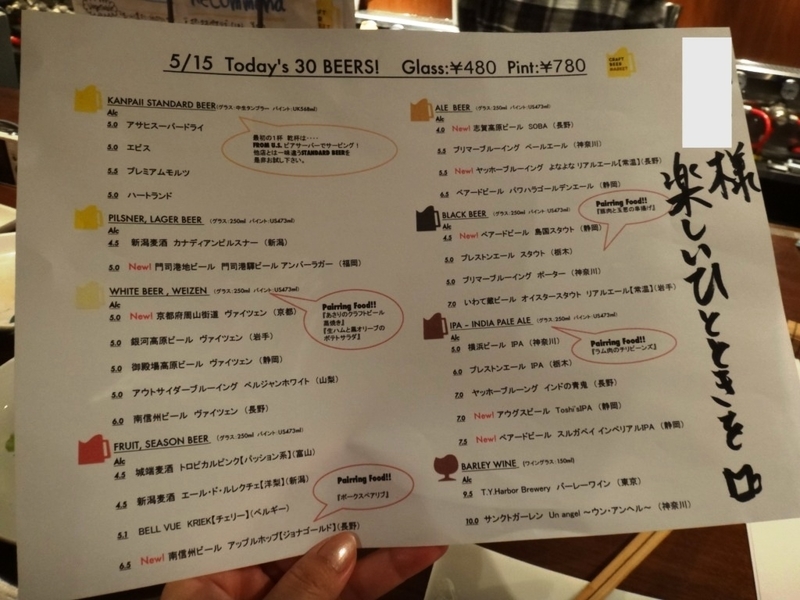 recommend
5/15 Today's 30 BEERS! Glass:¥480 Pint:¥780
CRAFT BEER MARKET
KANPAII STANDARD BEER (グラス:中生タンブラー パイント:UK568ml)
Alc
5.0 アサヒスーパードライ
5.0 エビス
5.5 プレミアムモルツ
5.0 ハートランド
最初の1杯 乾杯は‥‥
FROM U.S. ビアサーバーでサービング!
他店とは一味違うSTANDARD BEERを
是非お試し下さい。
PILSNER, LAGER BEER (グラス:250ml パイント:US473ml)
Alc
4.5 新潟麦酒 カナディアンピルスナー (新潟)
5.0 New! 門司港地ビール 門司港驛ビール アンバーラガー (福岡)
WHITE BEER, WEIZEN (グラス:250ml パイント:US473ml)
Alc
5.0 New! 京都府周山街道 ヴァイツェン (京都)
5.0 銀河高原ビール ヴァイツェン (岩手)
5.0 御殿場高原ビール ヴァイツェン (静岡)
5.0 アウトサイダーブルーイング ベルジャンホワイト (山梨)
6.0 南信州ビール ヴァイツェン (長野)
Pairring Food!!
『あさりのクラフトビール
蒸焼き』
『生ハムと黒オリーブの
ポテトサラダ』
FRUIT, SEASON BEER (グラス:250ml パイント:US473ml)
Alc
4.5 城端麦酒 トロピカルピンク【パッション系】(富山)
4.5 新潟麦酒 エール・ド・ルレクチェ【洋梨】(新潟)
5.1 BELL VUE KRIEK【チェリー】(ベルギー)
6.5 New! 南信州ビール アップルホップ【ジョナゴールド】(長野)
Pairring Food!!
『ポークスペアリブ』
ALE BEER (グラス:250ml パイント:US473ml)
Alc
4.0 New! 志賀高原ビール SOBA (長野)
5.5 プリマーブルーイング ペールエール (神奈川)
5.5 New! ヤッホーブルーイング よなよなリアルエール【常温】(長野)
6.5 ベアードビール パワハラゴールデンエール (静岡)
BLACK BEER (グラス:250ml パイント:US473ml)
Alc
4.5 New! ベアードビール 島国スタウト (静岡)
5.0 プレストンエール スタウト (栃木)
5.0 プリマーブルーイング ポーター (神奈川)
7.0 いわて蔵ビール オイスタースタウト リアルエール【常温】(岩手)
Pairring Food!!
『豚肉と玉葱の串揚げ』
IPA - INDIA PALE ALE (グラス:250ml パイント:US473ml)
Alc
5.0 横浜ビール IPA (神奈川)
6.0 プレストンエール IPA (栃木)
7.0 ヤッホーブルーング インドの青鬼 (長野)
7.0 New! アウグスビール Toshi'sIPA (静岡)
7.5 New! ベアードビール スルガベイ インペリアルIPA (静岡)
Pairring Food!!
『ラム肉のチリビーンズ』
BARLEY WINE (ワイングラス:150ml)
Alc
9.5 T.Y.Harbor Brewery バーレーワイン (東京)
10.0 サンクトガーレン Un angel 〜ウン・アンヘル〜 (神奈川)
様
楽しいひとときを